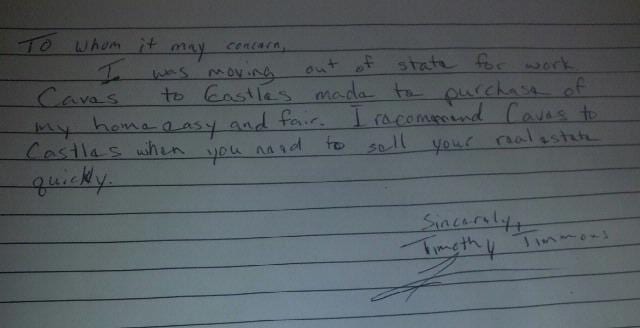 To whom it may concern,
I was moving out of state for work
Caves to Castles made te purchase of
my home easy and fair. I recommend Caves to
Castles when you need to sell your real estate
quickly.
Sincerely,
Timothy Timmons